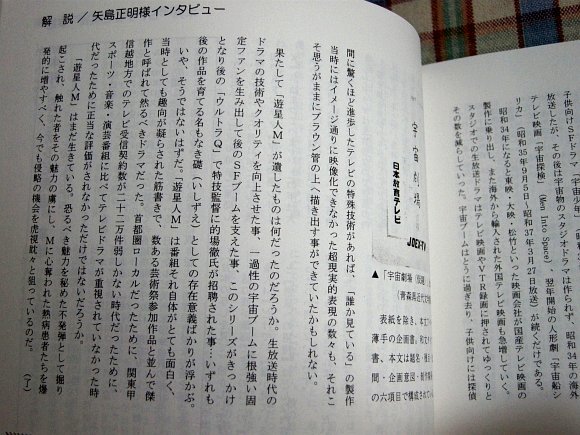 SFドラマ「宇宙少年
放送したが、その後は宇宙物のスタジオドラマは作られず、
テレビ映画「宇宙探検」(Men Into Space)、翌年開始の人形劇「宇宙船シ
リカ」（昭和35年9月5日、昭和37年3月27日放送）が続くだけである。
昭和34年になると東映・大映・松竹といった映画会社が国産テレビ映画の
製作に乗り出し、また海外から輸入された外国テレビ映画も急増していく。
スタジオでの生放送ドラマはテレビ映画やVTR録画に押されてゆっくりと
その数を減らしていった。宇宙ブームはとうに過ぎ去り、子供向けには探偵
宇宙劇場
日本教育テレビ
JOEX-TV
▲「宇宙劇場
表紙を除き、本文
薄手の企画書。
書、本文は題名・
間・企画意図・制作
の六項目で構成されてい
解説／矢島正明様インタビュー
間に驚くほど進歩したテレビの特殊技術があれば、「誰か見ている」の製作
当時にはイメージ通りに映像化できなかった超現実的表現の数々も、それこ
そ思うがままにブラウン管の上へ描き出す事ができていたかもしれない。
果たして「遊星人M」が遺したものは何だったのだろうか。生放送時代の
ドラマの技術やクオリティを向上させた事、一過性の宇宙ブームに根強い固
定ファンを生み出して後のSFブームを支えた事、このシリーズがきっかけ
となり後の「ウルトラQ」で特技監督に的場徹氏が招聘された事…いずれも
後の作品を育てる名もなき礎（いしずえ）としての存在意義ばかりが浮かぶ。
いや、そうではないはずだ。「遊星人M」は番組それ自体がとても面白く、
当時としても趣向が凝らされた筋書きで、数ある芸術祭参加作品と並んで傑
作と呼ばれて然るべきドラマだった。首都圏ローカルだったために、関東甲
信越地方でのテレビ受信契約数が二十二万件弱しかない時代だったために、
スポーツ・音楽・演芸番組に比べてテレビドラマが重視されていなかった時
代だったために正当な評価がされなかっただけではないだろうか。
「遊星人M」はまだ生きている。恐るべき魅力を秘めた不発弾として掘り
起こされ、触れた者をその魅力の虜にし、Mに心奪われた熱病患者たちを爆
発的に増やすべく、今でも侵略の機会を虎視眈々と狙っているのだ。（T）